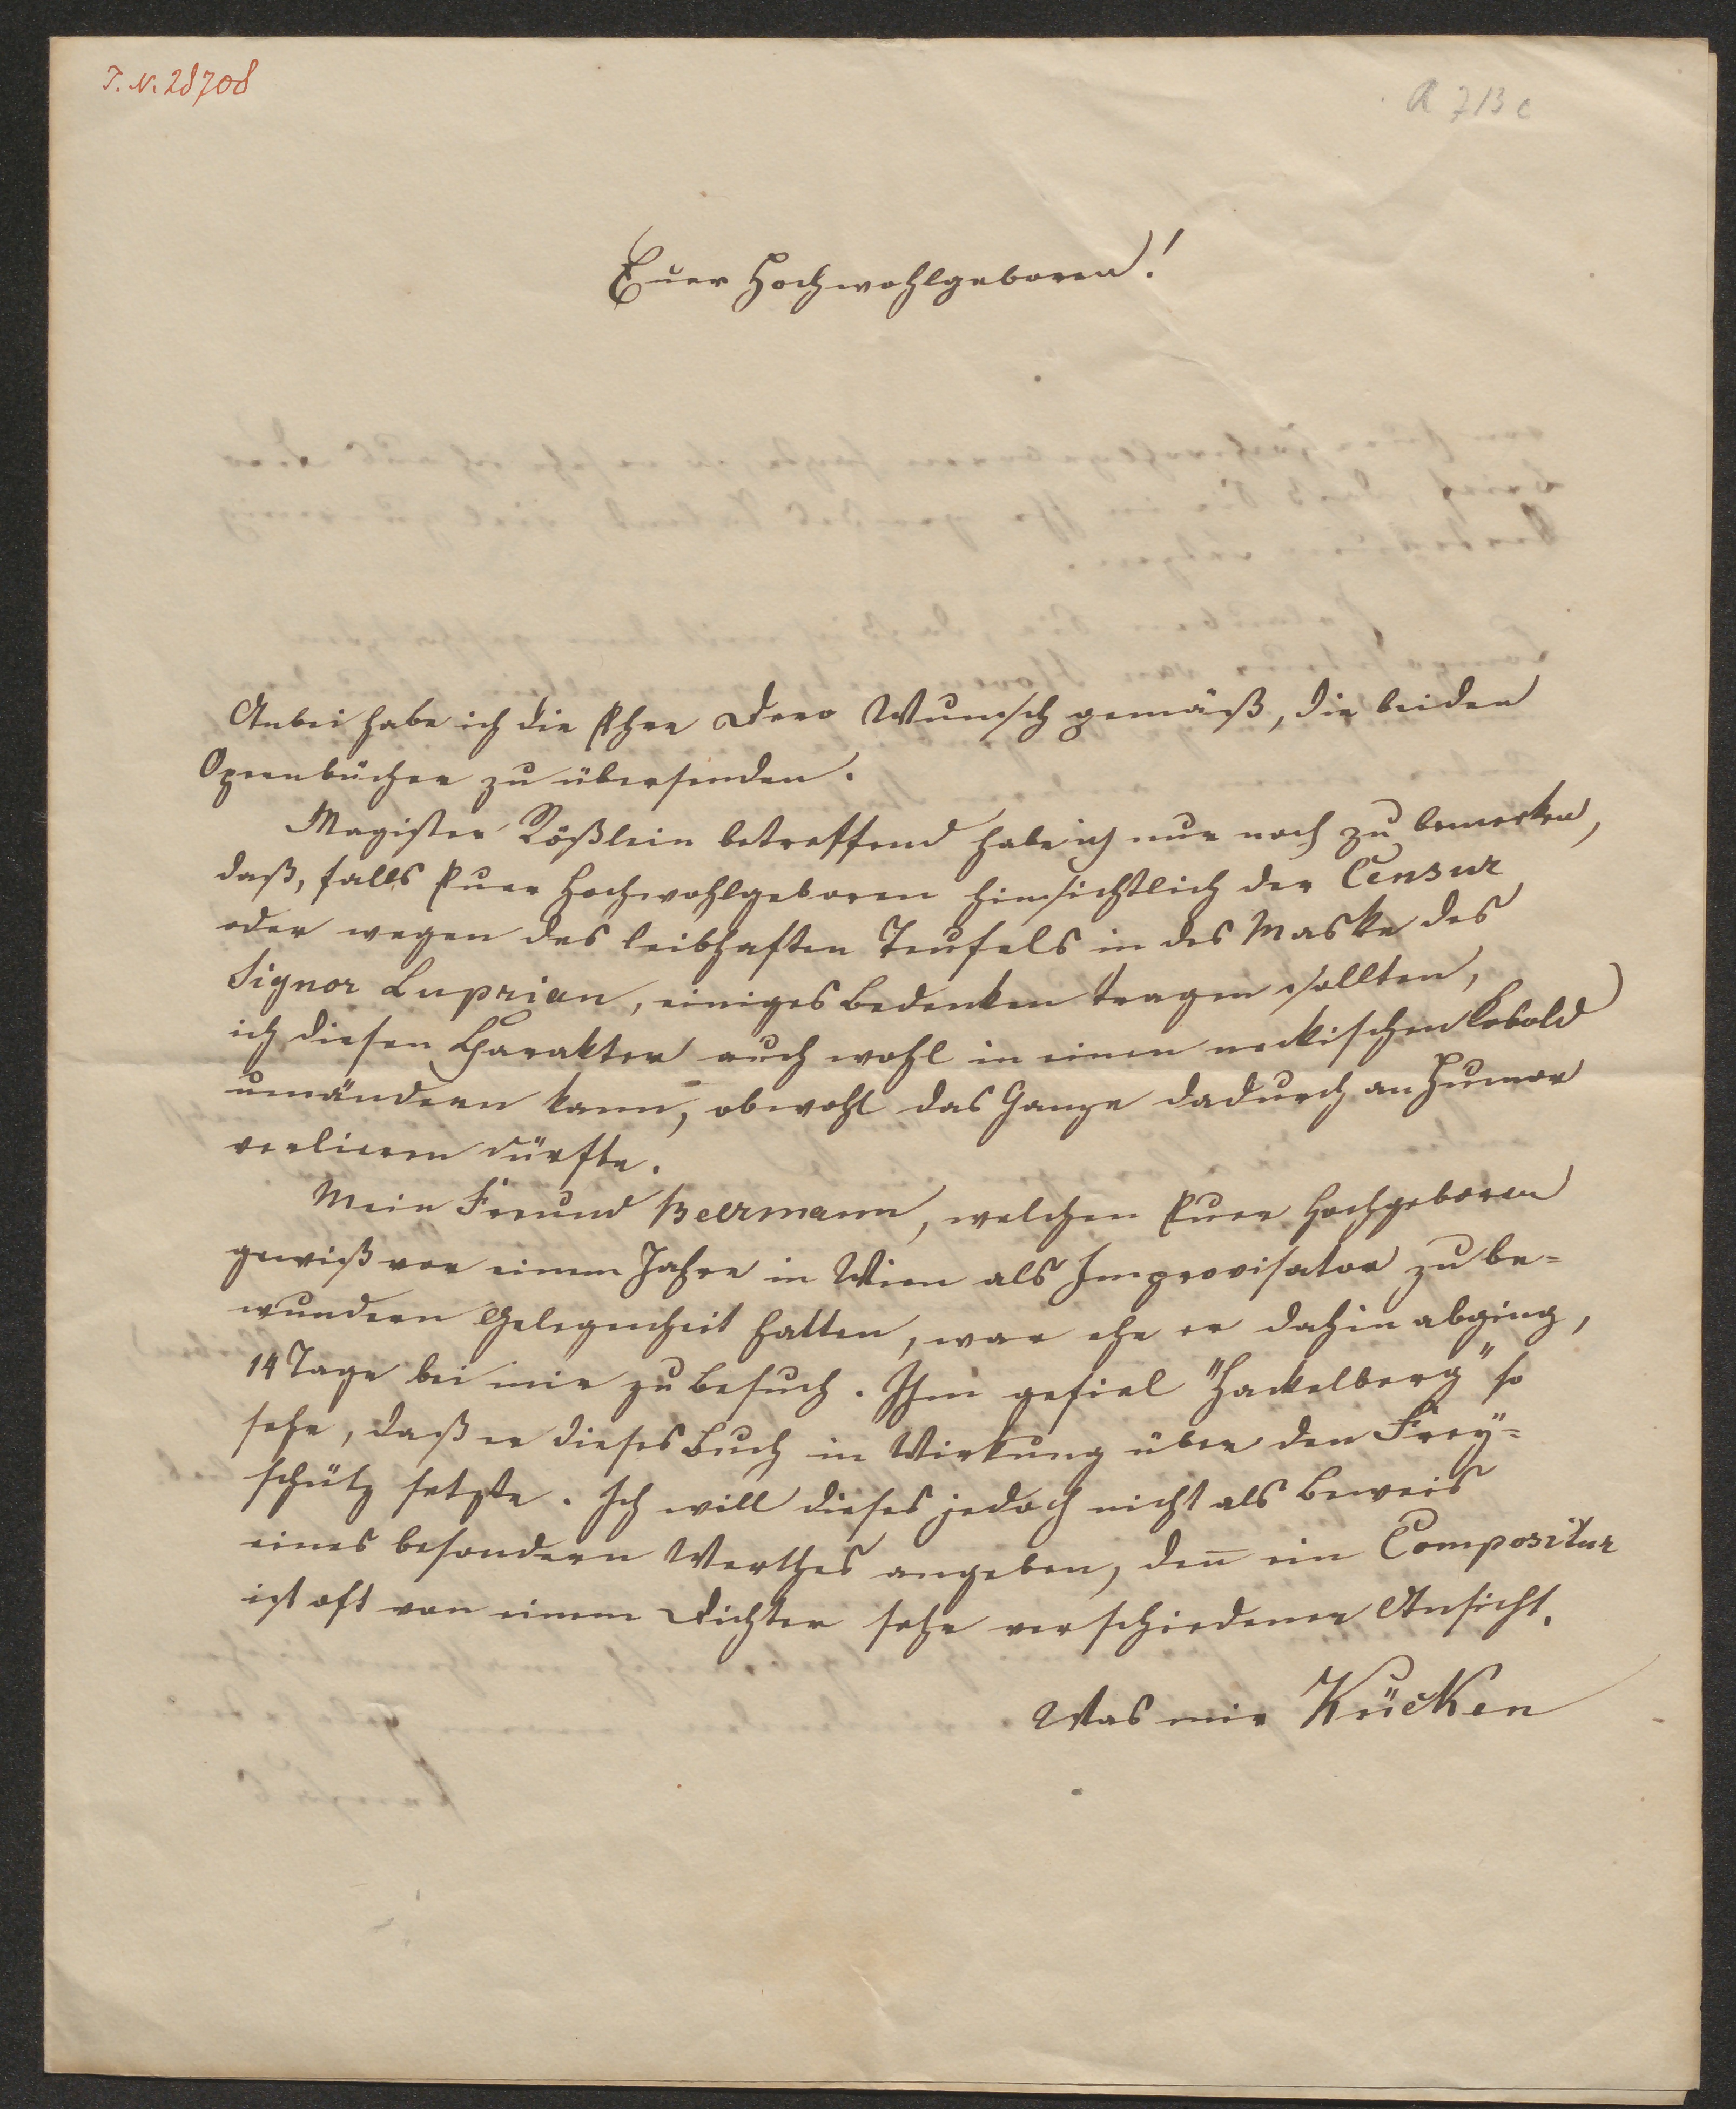 I. N. 28708
A 713 c
Euer Hochwohlgeboren!
Anbei habe ich die Ehre Dero Wunsch gemäß, die beiden
Opernbücher zu übersenden.
Magister Rößlein betreffend habe ich nur noch zu bemerken,
daß, falls Euer Hochwohlgeboren hinsichtlich der Censur
oder wegen des leibhaften Teufels in der Maske des
Signor Luprian, einiges Bedenken tragen sollten,
ich diesen Charakter auch wohl in einen neckischen Kobold
umändern kann, obwohl das Ganze dadurch an Humor
verlieren dürfte.
Mein Freund Beermann, welchen Euer Hochgeboren
gewiß vor einem Jahre in Wien als Improvisator zu be=
wundern Gelegenheit hatten, war ehe er dahin abging,
14 Tage bei mir zu Besuch. Ihm gefiel "Hackelberg" so
sehr, daß er dieses Buch in Wirkung über den Frey=
schütz setzte. Ich will dieses jedoch nicht als Beweis
eines besondern Werthes angeben, den̄ ein Compositur
ist oft von einem Dichter sehr verschiedener Ansicht.
Was mir Kücken